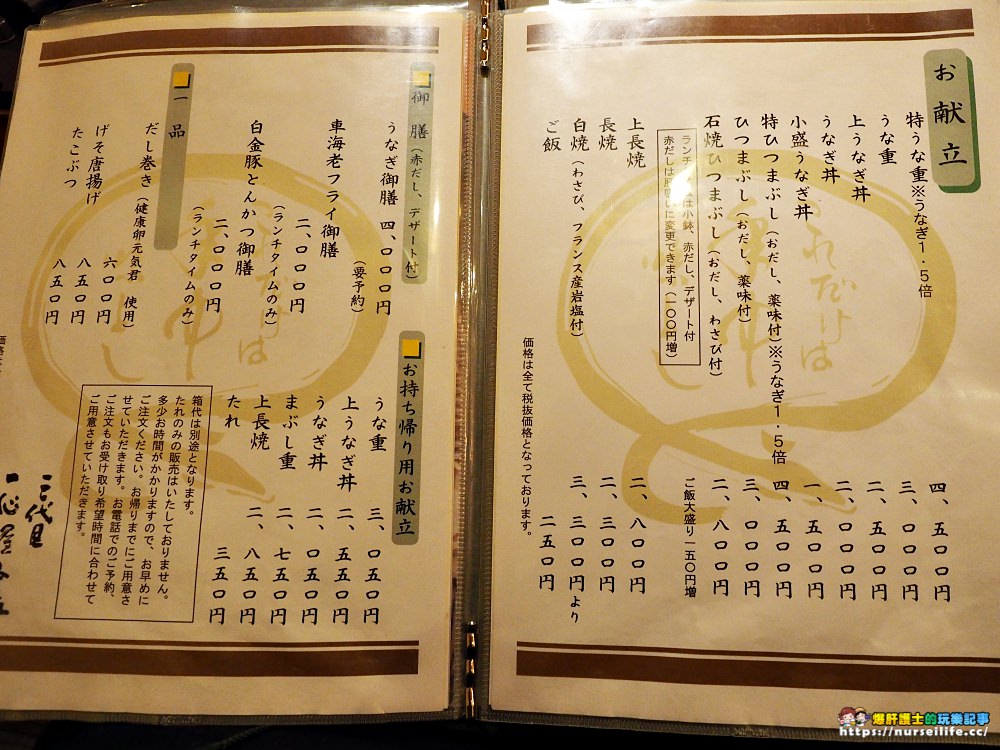 お献立
特うな重※うなぎ1.5倍 四、五〇〇円
うな重 三、〇〇〇円
上うなぎ丼 二、五〇〇円
うなぎ丼 二、〇〇〇円
小盛うなぎ丼 一、五〇〇円
特ひつまぶし(おだし、薬味付)※うなぎ1.5倍 四、五〇〇円
ひつまぶし(おだし、薬味付) 三、〇〇〇円
石焼ひつまぶし(おだし、わさび付) 二、八〇〇円
ご飯大盛り一五〇円増
ランチ は小鉢、赤だし、デザート付
赤だしは肝吸いに変更できます(一〇〇円増)
上長焼 二、八〇〇円
長焼
白焼(わさび、フランス産岩塩付) 円より
ご飯 二五〇円
価格は全て税抜価格となっております。
御膳(赤だし、デザート付)
うなぎ御膳 四、〇〇〇円
(要予約)
車海老フライ御膳 二、〇〇〇円
(ランチタイムのみ)
白金豚とんかつ御膳 二、〇〇〇円
(ランチタイムのみ)
一品
だし巻き(健康卵元気君 使用) 六〇〇円
げそ唐揚げ 八五〇円
たこぶつ 八五〇円
お持ち帰り用お献立
うな重 三、〇五〇円
上うなぎ丼 二、五五〇円
うなぎ丼 二、〇五〇円
まぶし重 二、七五〇円
上長焼 二、八五〇円
たれ 三五〇円
箱代は別途となります。
たれのみの販売はいたしておりません。
多少お時間がかかりますので、お早めに
ご注文ください。お帰りまでにご用意さ
せていただきます。お電話でのご予約、
ご注文もお受け取り希望時間に合わせて
ご用意させていただきます。
三代目
爆肝護士的玩樂記事
https://nurseilife.cc/